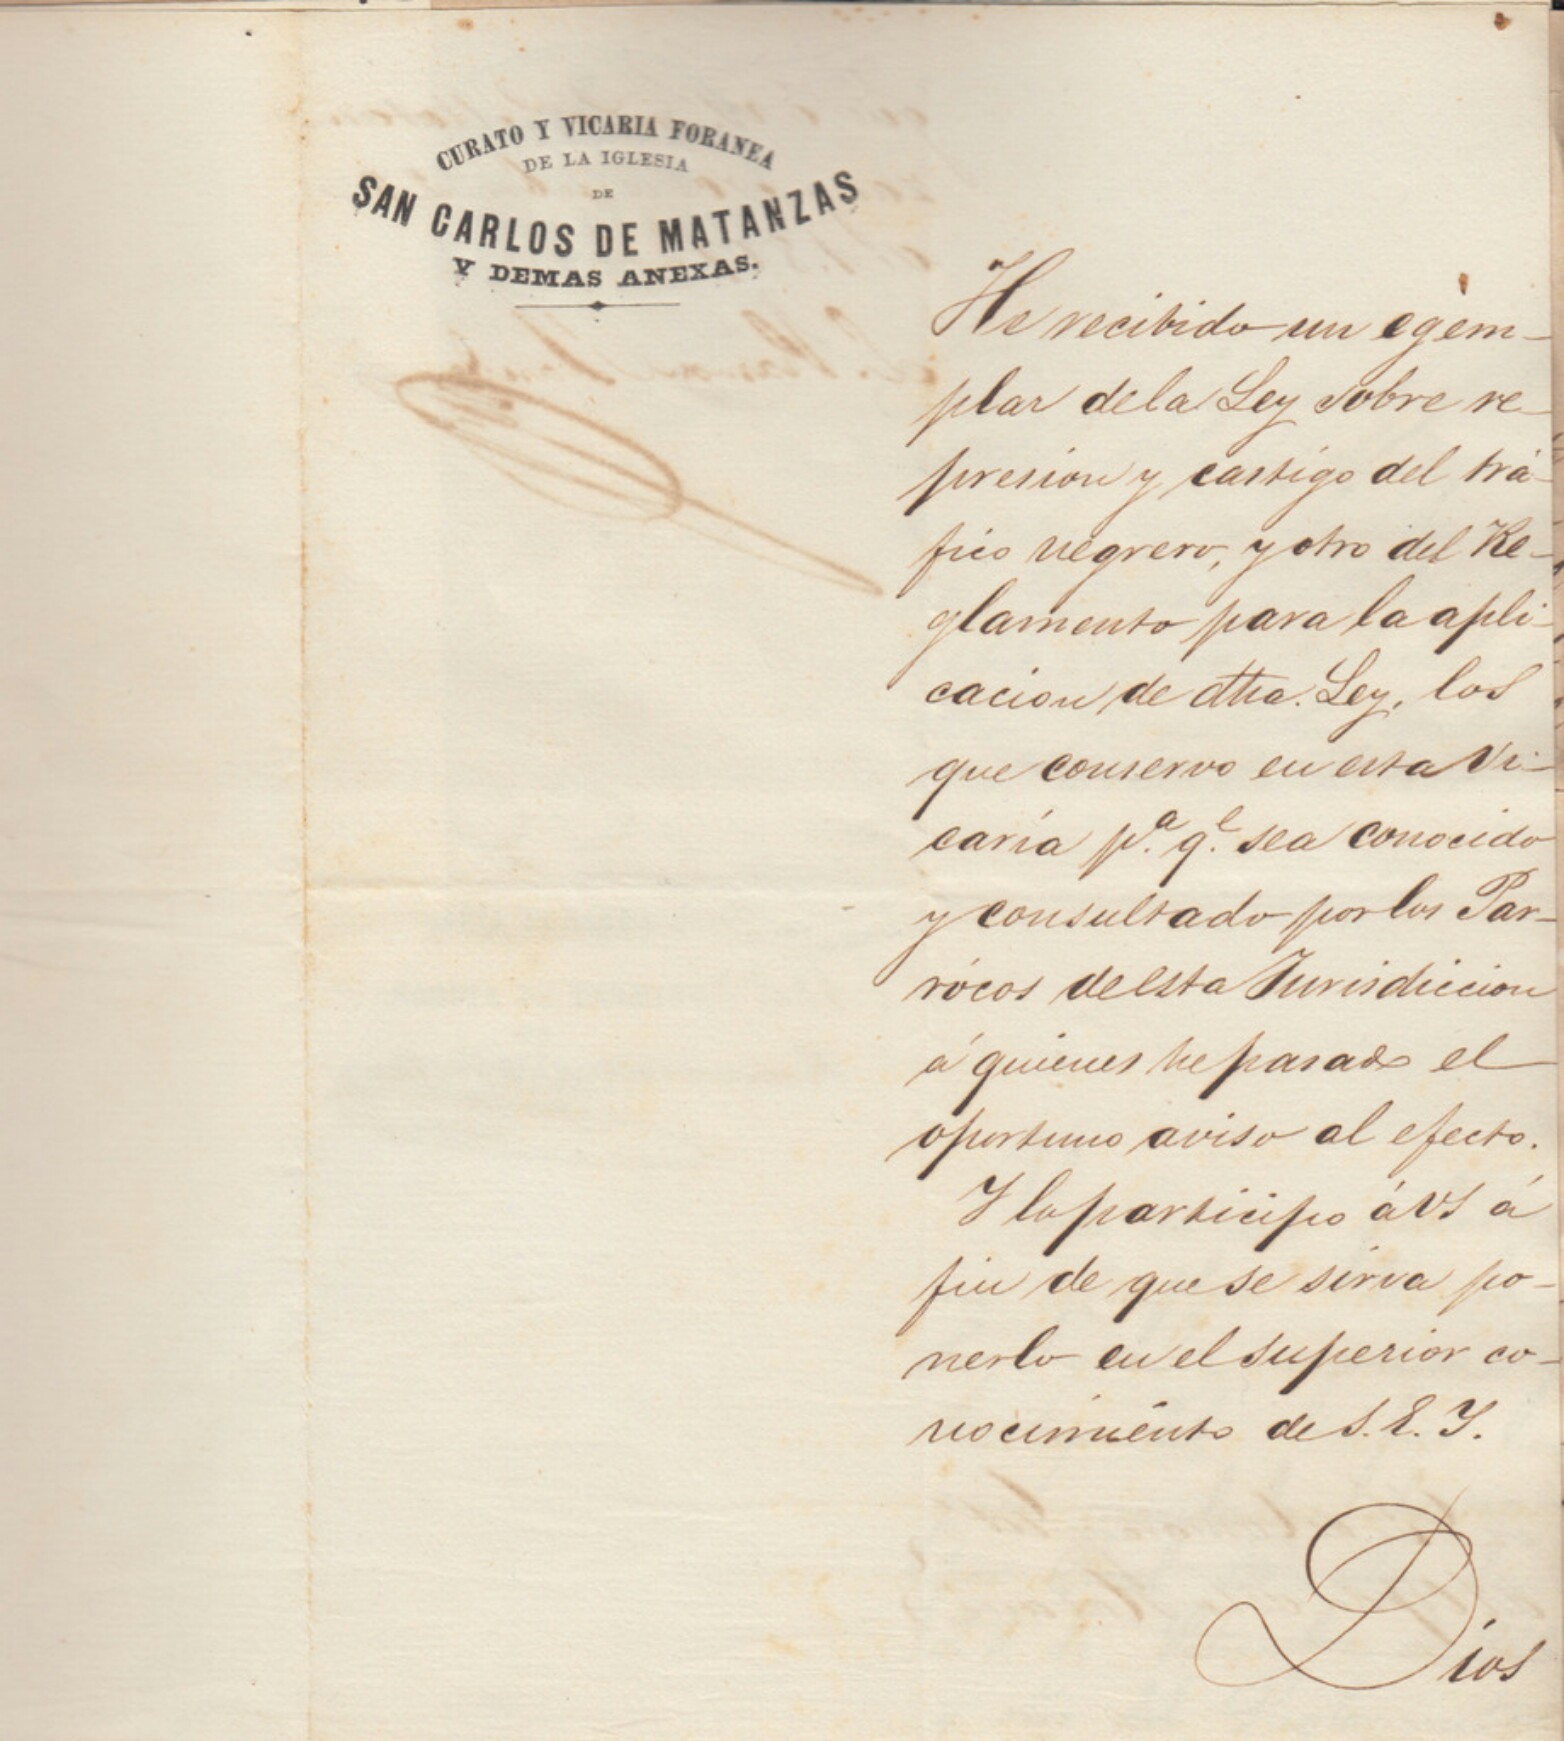 CURATO Y VICARIA FORANEA
DE LA IGLESIA
DE
SAN CARLOS DE MATANZAS
Y DEMAS ANEXAS.
He recibido un egem-
plar de la Ley sobre re-
presion y castigo del trá-
fico negrero, y otro del Re-
glamento para la apli-
cacion de dha. Ley, los
que conservo en esta Vi-
caría p.a q.e sea conocido
y consultado por los Pár-
rocos de esta Jurisdiccion
á quienes he pasado el
oportuno aviso al efecto.
Y lo participo á VS á
fin de que se sirva po-
nerlo en el superior co-
nocimiento de S. E. Y.
Dios